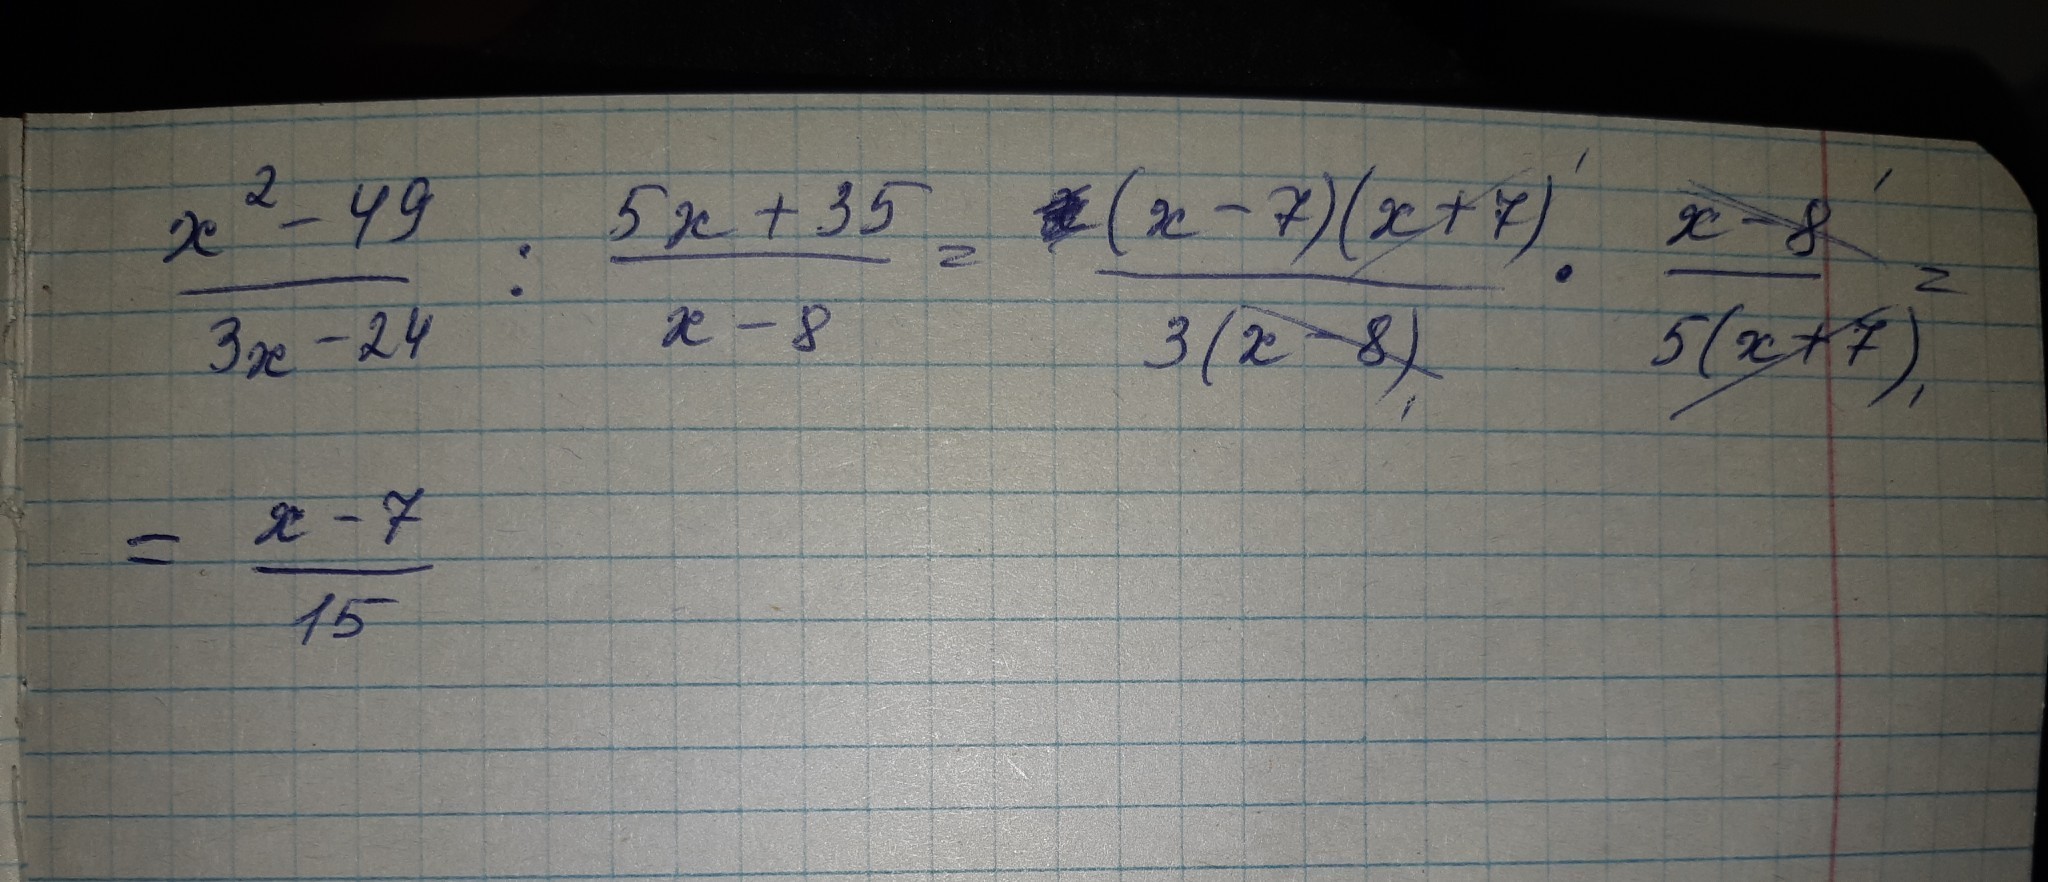 x² - 49 / 3x - 24 : 5x + 35 / x - 8 = (x - 7)(x + 7) / 3(x - 8) · x - 8 / 5(x + 7) =
= x - 7 / 15